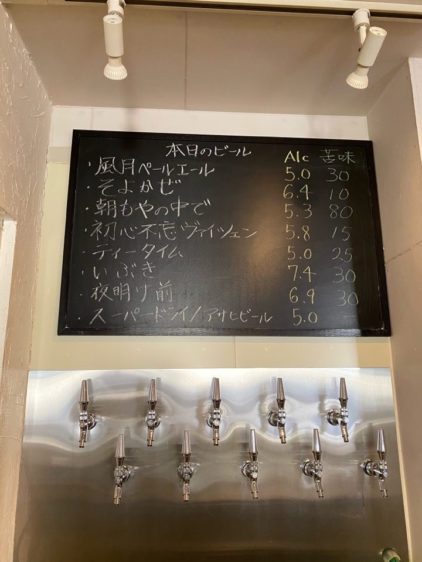 本日のビール Alc 苦味
・風月ペールエール 5.0 30
・そよかぜ 6.4 10
・朝もやの中で 5.3 80
・初心不忘ヴァイツェン 5.8 15
・ティータイム 5.0 25
・いぶき 7.4 30
・夜明け前 6.9 30
・スーパードライ/アサヒビール 5.0 -